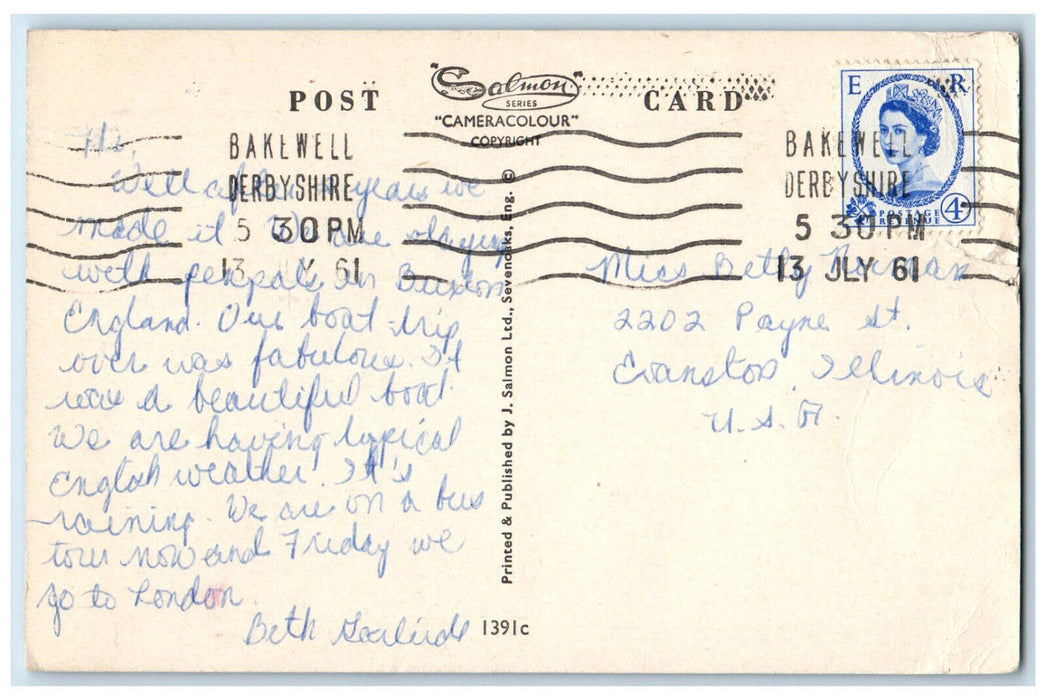 POST CARD
"Salmon SERIES
"CAMERACOLOUR"
COPYRIGHT
E R
POSTAGE REVENUE
4D
BAKEWELL
DERBYSHIRE
5 30 PM
13 JLY 61
BAKEWELL
DERBYSHIRE
5 30 PM
13 JLY 61
Hi,
Well after years we
made it We are staying
with penpals in Buxton
England. Our boat trip
over was fabulous. It
was a beautiful boat
We are having typical
English weather. It's
raining. We are on a bus
tour now and Friday we
go to London.
Beth
Printed & Published by J. Salmon Ltd., Sevenoaks, Eng. ©
1391c
Miss Betty
2202 Payne st.
Evanston, Illinois
U.S.A.